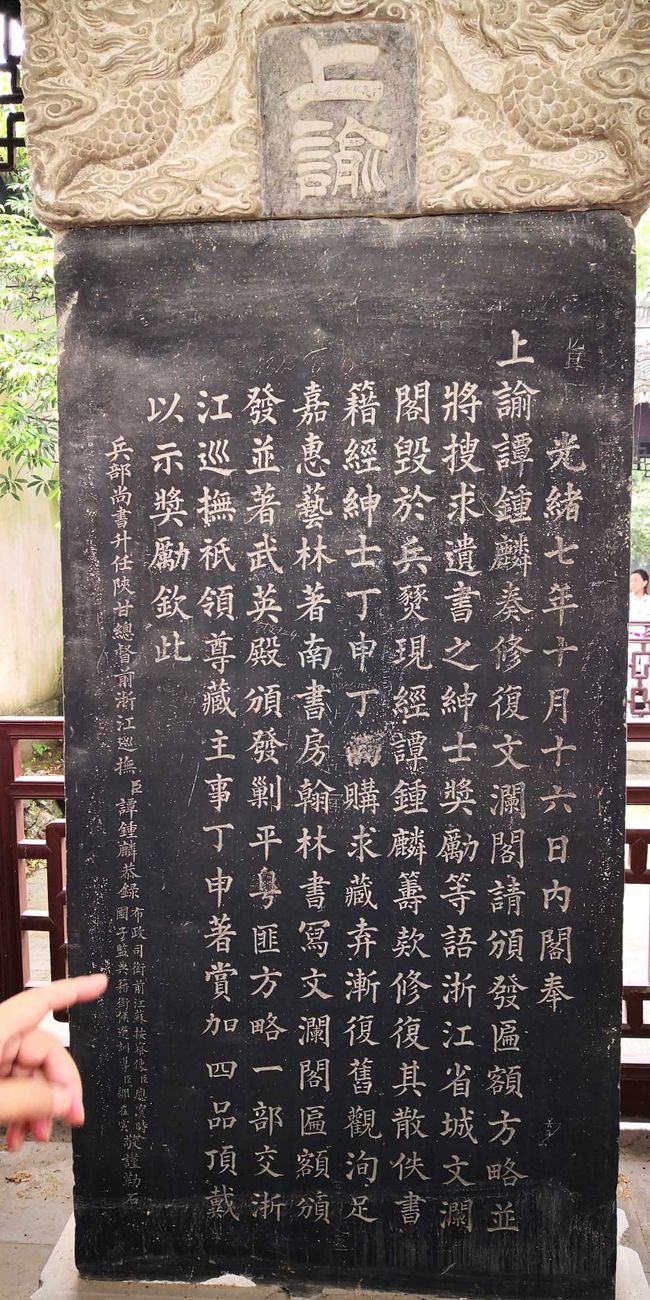 上諭
光緒七年十月十六日內閣奉
上諭譚鍾麟奏修復文瀾閣請頒發匾額方略並
將搜求遺書之紳士獎勵等語浙江省城文瀾
閣毀於兵燹現經譚鍾麟籌款修復其散佚書
籍經紳士丁申丁購求藏弆漸復舊觀洵足
嘉惠藝林著南書房翰林書寫文瀾閣匾額頒
發並著武英殿頒發剿平粵匪方略一部交浙
江巡撫祇領尊藏主事丁申著賞加四品頂戴
以示獎勵欽此
兵部尚書升任陝甘總督前浙江巡撫臣譚鍾麟恭錄
布政司銜前江蘇按察使臣應寶時
國子監典籍銜候選訓導臣鄒在寅
敬謹勒石